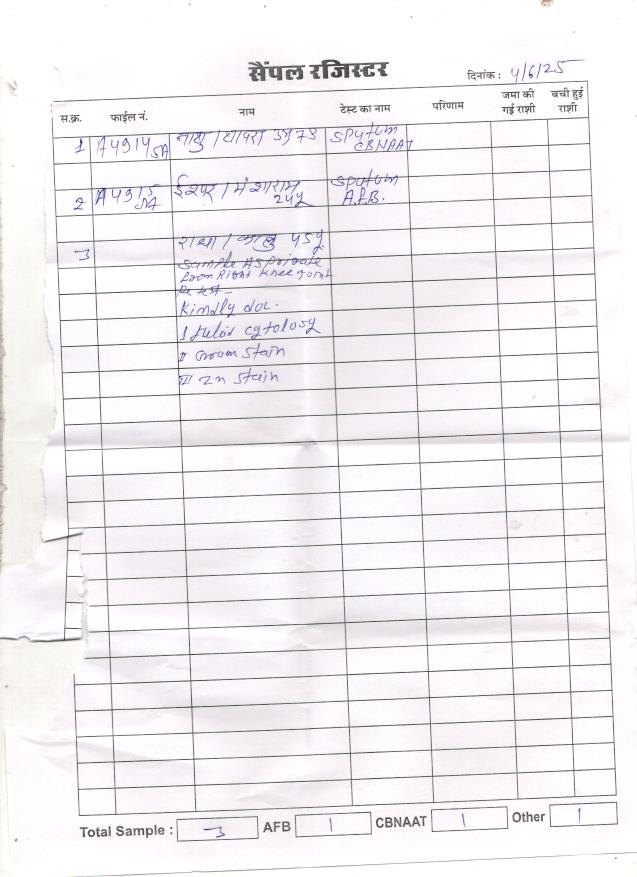 सैंपल रजिस्टर
दिनांक : 4/6/25
स.क्र. फाईल नं. नाम टेस्ट का नाम परिणाम जमा की गई राशी बची हुई राशी
1 A4914 SA नाथु / 78 Sputum
CBNAAT
2 A4915 SA ईश्वर / मंशाराम Sputum
24y A.F.B.
3 राधा / कालु 45y
Sample Aspriate
from Right knee Joint
Kimdly do.
I fuloid cytology
II Groum Stain
III Zn Stain
Total Sample : 3 AFB 1 CBNAAT 1 Other 1